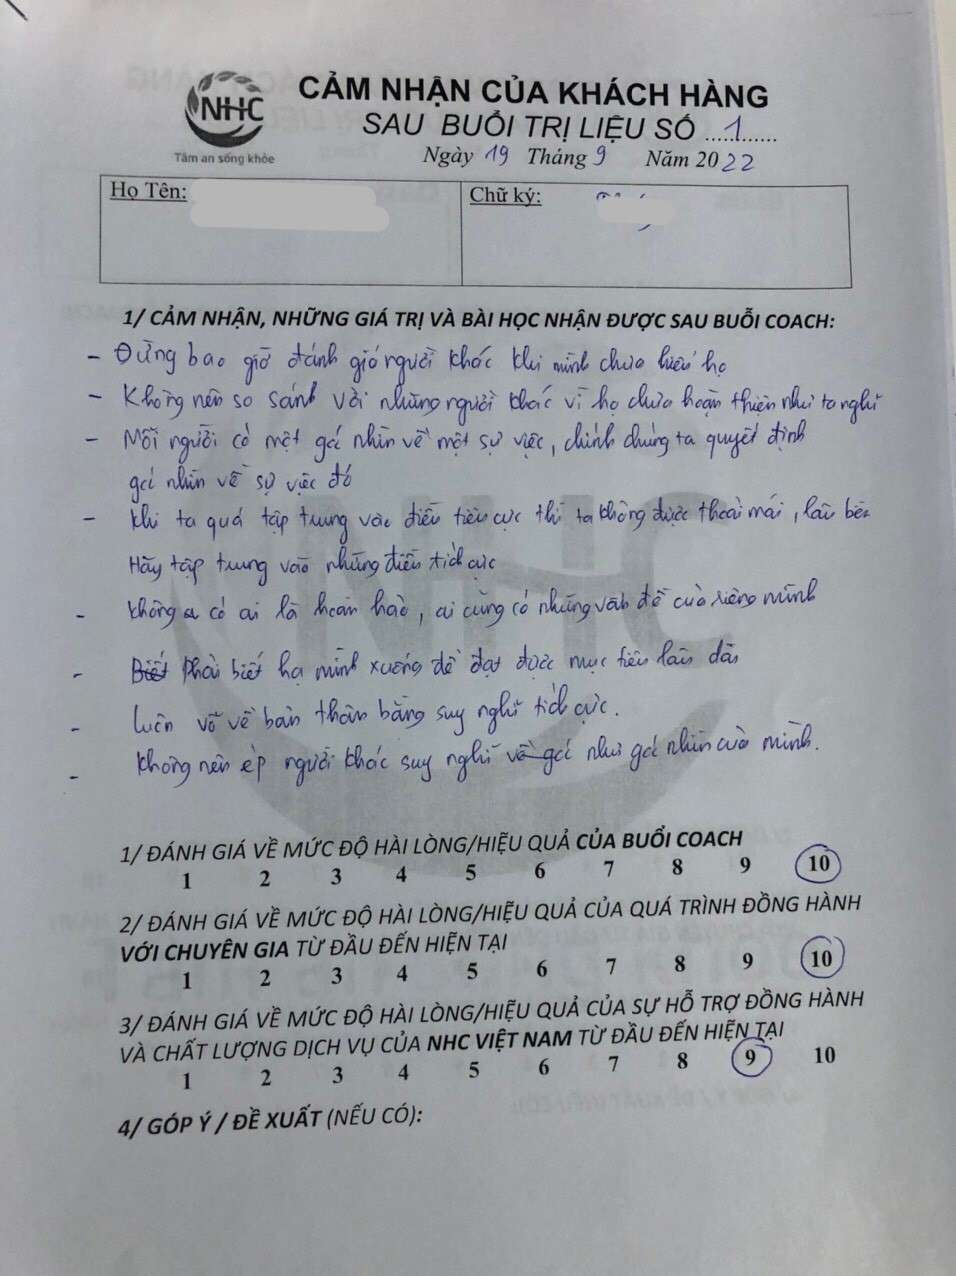 NHC
Tâm an sống khỏe
CẢM NHẬN CỦA KHÁCH HÀNG
SAU BUỔI TRỊ LIỆU SỐ ....1.......
Ngày 19 Tháng 9 Năm 2022
Họ Tên:
Chữ ký:
1/ CẢM NHẬN, NHỮNG GIÁ TRỊ VÀ BÀI HỌC NHẬN ĐƯỢC SAU BUỔI COACH:
- Đừng bao giờ đánh giá người khác khi mình chưa hiểu họ
- Không nên so sánh với những người khác vì họ chưa hoàn thiện như ta nghĩ
- Mỗi người có một gốc nhìn về một sự việc, chính chúng ta quyết định
gốc nhìn về sự việc đó
- Khi ta quá tập trung vào điều tiêu cực thì ta không được thoải mái, lâu
Hãy tập trung vào những điều tích cực
- Không có ai là hoàn hảo, ai cũng có những vấn đề của riêng mình
- Biết Phải biết hạ mình xuống để đạt được mục tiêu lâu dài
- Luôn vỗ về bản thân bằng suy nghĩ tích cực.
- Không nên ép người khác suy nghĩ về gốc như gốc nhìn của mình.
NHC
1/ ĐÁNH GIÁ VỀ MỨC ĐỘ HÀI LÒNG/HIỆU QUẢ CỦA BUỔI COACH
1 2 3 4 5 6 7 8 9 10
2/ ĐÁNH GIÁ VỀ MỨC ĐỘ HÀI LÒNG/HIỆU QUẢ CỦA QUÁ TRÌNH ĐỒNG HÀNH
VỚI CHUYÊN GIA TỪ ĐẦU ĐẾN HIỆN TẠI
1 2 3 4 5 6 7 8 9 10
3/ ĐÁNH GIÁ VỀ MỨC ĐỘ HÀI LÒNG/HIỆU QUẢ CỦA SỰ HỖ TRỢ ĐỒNG HÀNH
VÀ CHẤT LƯỢNG DỊCH VỤ CỦA NHC VIỆT NAM TỪ ĐẦU ĐẾN HIỆN TẠI
1 2 3 4 5 6 7 8 9 10
4/ GÓP Ý / ĐỀ XUẤT (NẾU CÓ):